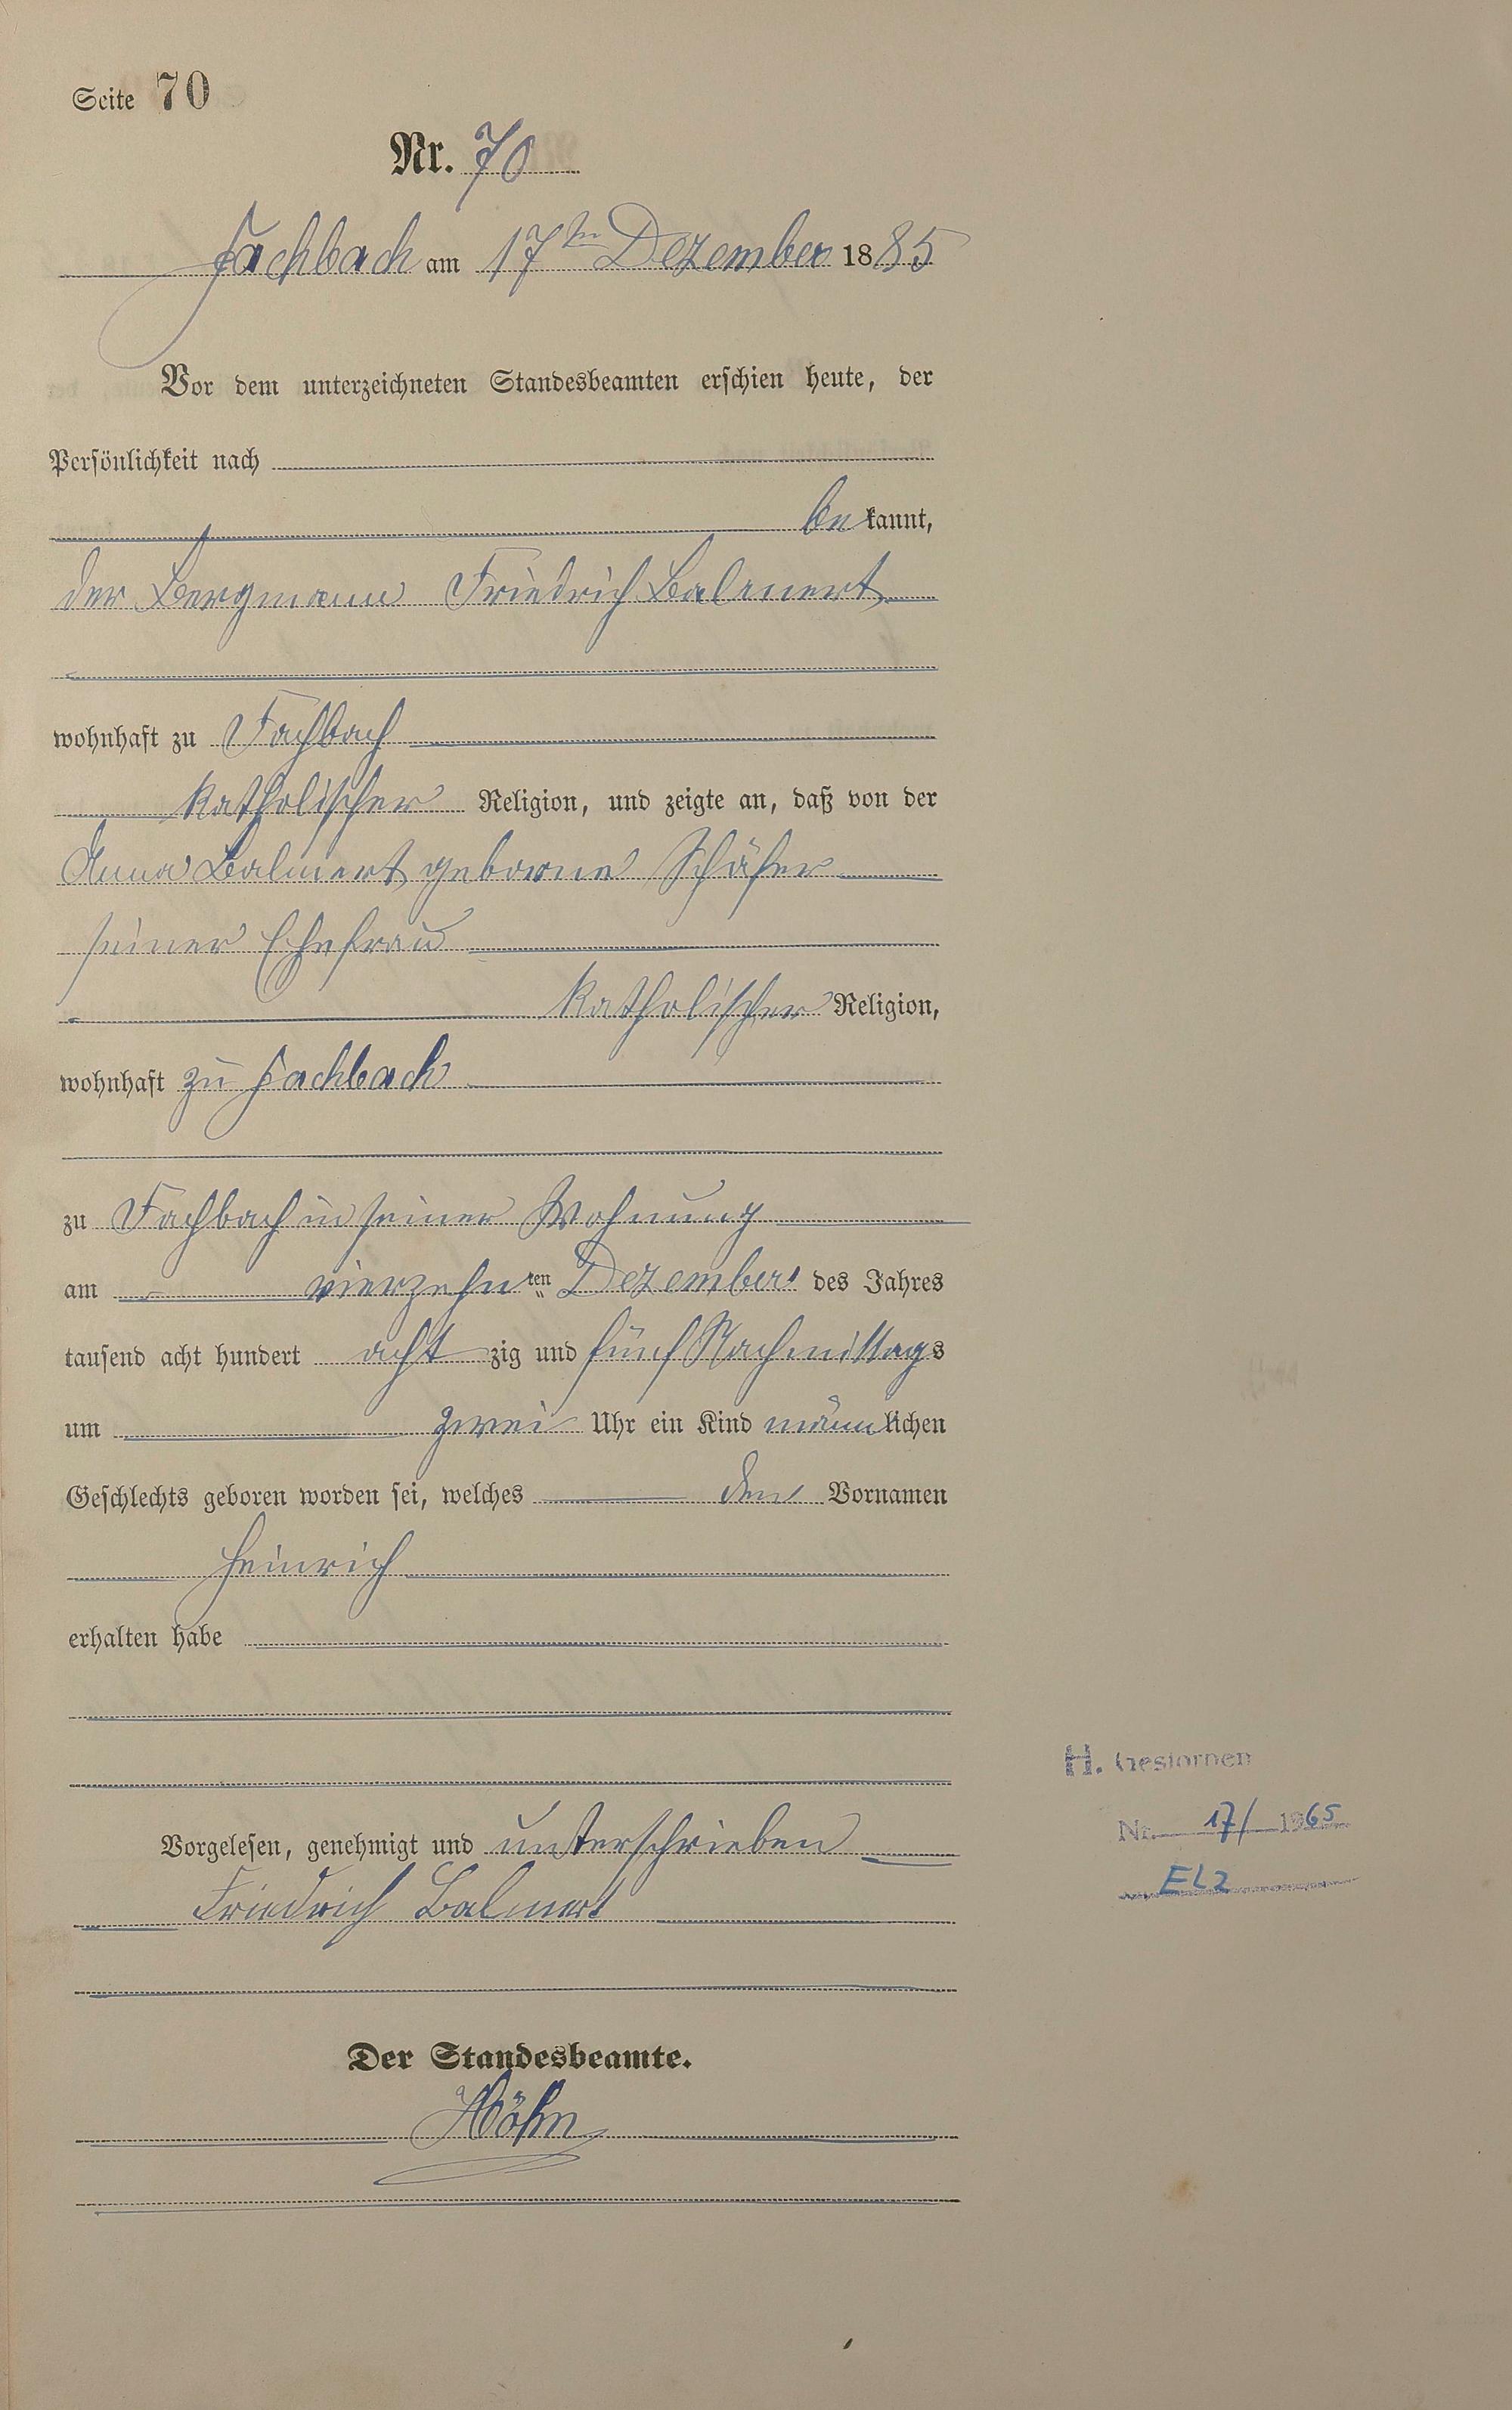 Seite 70
Nr. 70
Fachbach am 17ten Dezember 1885
Vor dem unterzeichneten Standesbeamten erschien heute, der
Persönlichkeit nach
bekannt,
der Bergmann Friedrich Balmert
wohnhaft zu Fachbach
katholischer Religion, und zeigte an, daß von der
Anna Balmert geborne Schäfer
seiner Ehefrau
katholischer Religion,
wohnhaft zu Fachbach
zu Fachbach in seiner Wohnung
am vierzehnten Dezember des Jahres
tausend acht hundert achtzig und fünf Nachmittags
um zwei Uhr ein Kind männlichen
Geschlechts geboren worden sei, welches den Vornamen
Heinrich
erhalten habe
Vorgelesen, genehmigt und unterschrieben
Friedrich Balmert
Der Standesbeamte.
Höhn
H. Gestorben
Nr. 17/1965
ELZ